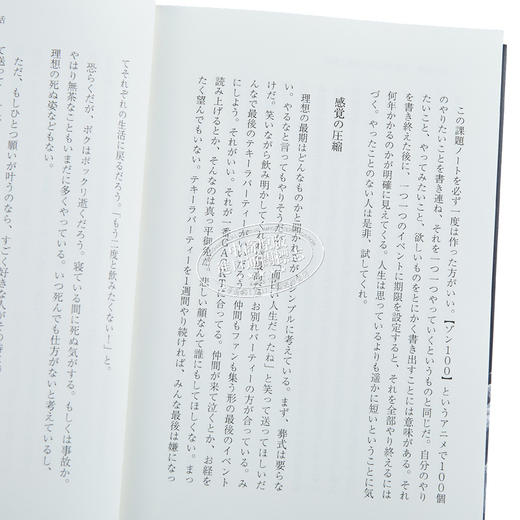 この課題ノートを必ず一度は作った方がいい。【ゾン100】というアニメで100個
のやりたいことを書き連ね、それを一つ一つやっていくというものと同じだ。自分のやり
たいこと、やってみたいこと、欲しいものをとにかく書き出すことには意味がある。それ
を書き終えた後に、一つ一つのイベントに期限を設定すると、それを全部やり終えるには
何年かかるのか明確に見えてくる。人生は思っているよりも遥かに短いということに気
づく。やったことのない人は是非、試してくれ。
感覚の圧縮
理想の最期はどんなものかと聞かれるが、シンプルに考えている。まず、葬式は要らな
い。やるなと言ってもやりそうだ
い人生だったね」と笑って送ってほしいだ
けだ。笑いながら飲み明かしてくれ
お別れパーティーの方が合っている。み
んなで最後のテキーラパーティーが
だろう。仲間もファンも集う形の最後のイベント
にしよう。それがいい。それが一番
に合ってる。仲間が来て泣くとか、お経を
読み上げるとか、そんなのは真っ平御免
悲しい顔なんて誰にもしてほしくない。まっ
たく望んでもいない。テキーラパーティーを1週間やり続ければ、みんな最後は嫌になっ
てそれぞれの生活に戻るだろう。「もう二度と飲みたくない！」と。
恐らくだが、ボクはポックリ逝くだろう。寝ている間に死ぬ気がする。もしくは事故か。
やはり無茶なこともいまだに多くやっている。いつ死んでも仕方がないと考えているし、
理想の死ぬ姿などもない。
ただ、もしひとつ願いが叶うのなら、すごく好きな人がその